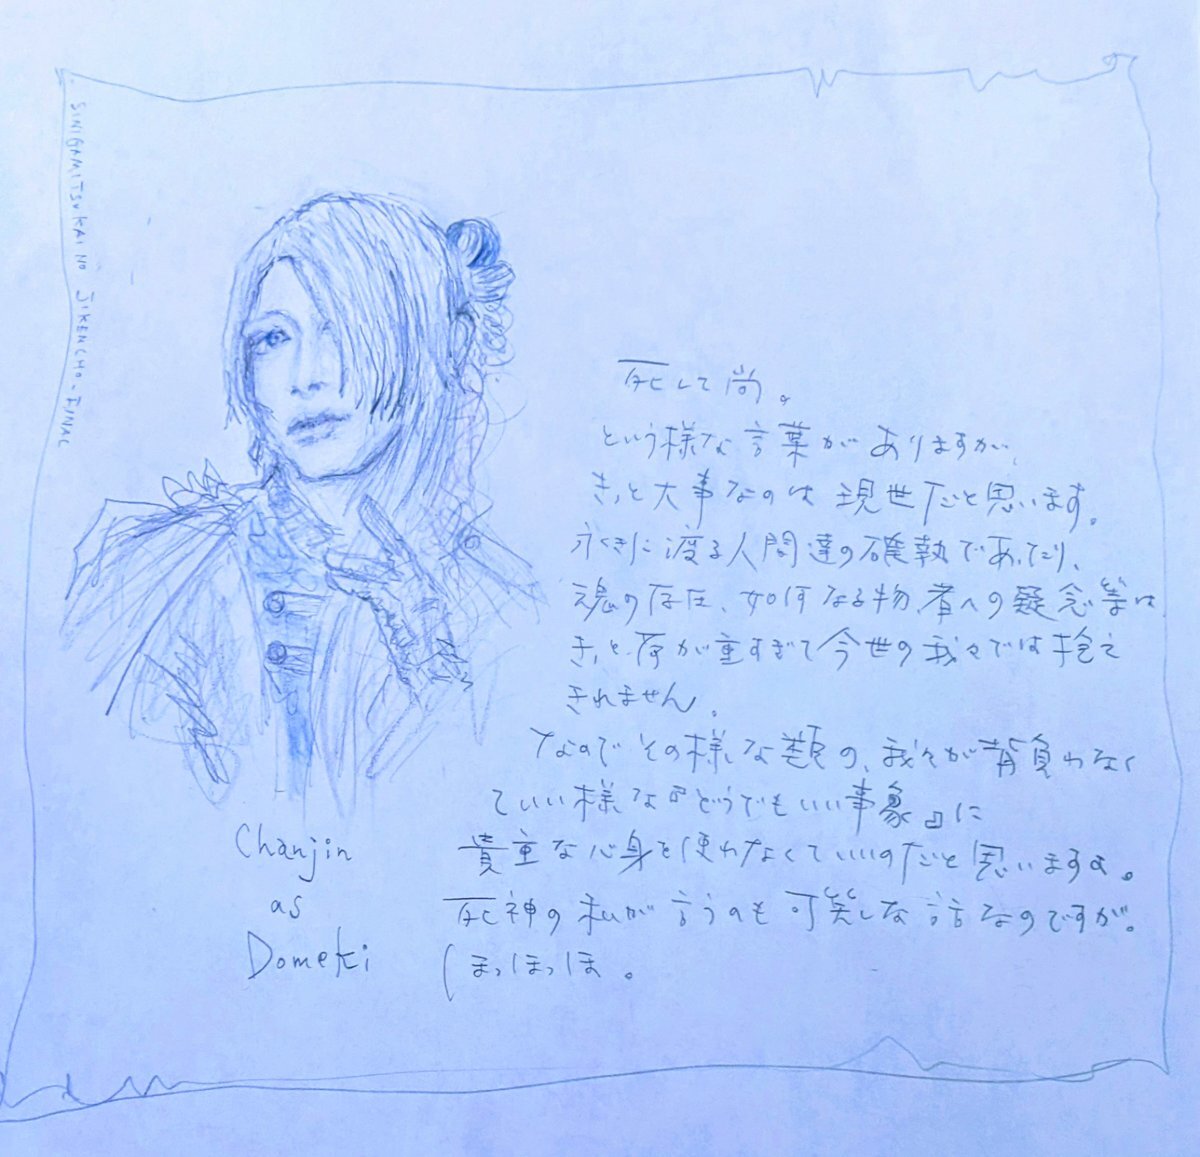 SINIGAMITSUKAI NO JIKENCHO-FINAL
死して尚。
という様な言葉がありますが、
きっと大事なのは現世だと思います。
永きに渡る人間達の確執であったり、
魂の存在、如何なる物、者への疑念等は
きっと荷が重すぎて今世の我々では抱え
きれません。
なのでその様な類の、我々が背負わなく
ていい様な『どうでもいい事象』に
貴重な心身を使わなくていいのだと思いますよ。
死神の私が言うのも可笑しな話なのですが。
ほっほっほ。
Chanjin
as
Dometi